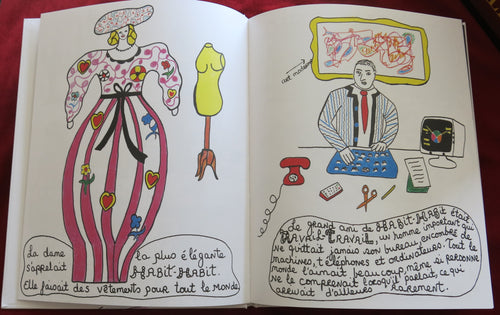 La dame la plus élégante
s'appelait HABIT-HABIT.
Elle faisait des vêtements pour tout le monde.
art moderne
Le grand ami de HABIT-HABIT était
TRAVAIL-TRAVAIL, un homme important qui
ne quittait jamais son bureau, encombré de
machines, téléphones et ordinateurs. Tout le
monde l'aimait beaucoup, même si personne
ne le comprenait lorsqu'il parlait, ce qui
arrivait d'ailleurs rarement.